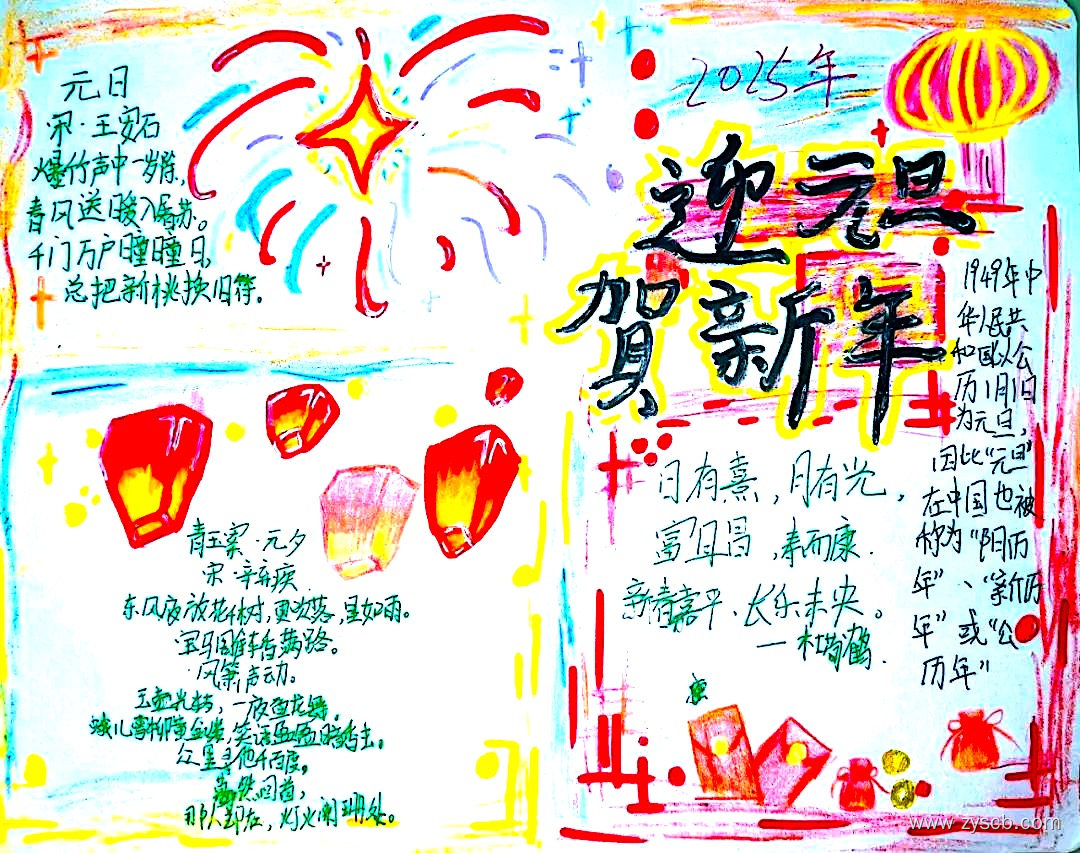 元日
宋·王安石
爆竹声中一岁除,
春风送暖入屠苏。
千门万户曈曈日,
总把新桃换旧符。
2025年
迎元旦
贺新年
1949年中
华人民共
和国以公
历1月1日
为元旦,
因此"元旦"
在中国也被
称为"阳历
年"、"新历
年"或"公
历年"
日有熹,月有光,
富且昌,寿而康.
新春嘉平、长乐未央。
青玉案·元夕
宋·辛弃疾
东风夜放花千树,更吹落,星如雨。
宝马雕车香满路。
风箫声动。
玉壶光转,一夜鱼龙舞。
蛾儿雪柳黄金缕,笑语盈盈暗香去。
众里寻他千百度,
蓦然回首,
那人却在,灯火阑珊处。
www.zyscb.com